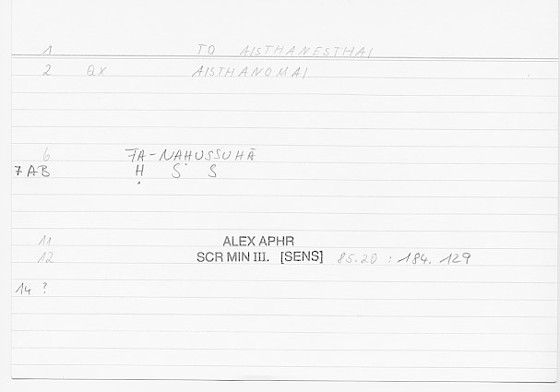 1 TO AISTHANESTHAI
2 QX AISTHANOMAI
6 FA-NAHUSSUHĀ
7 AB Ḥ S S
11 ALEX APHR
12 SCR MIN III. [SENS] 85.20 : 184. 129
14 ?